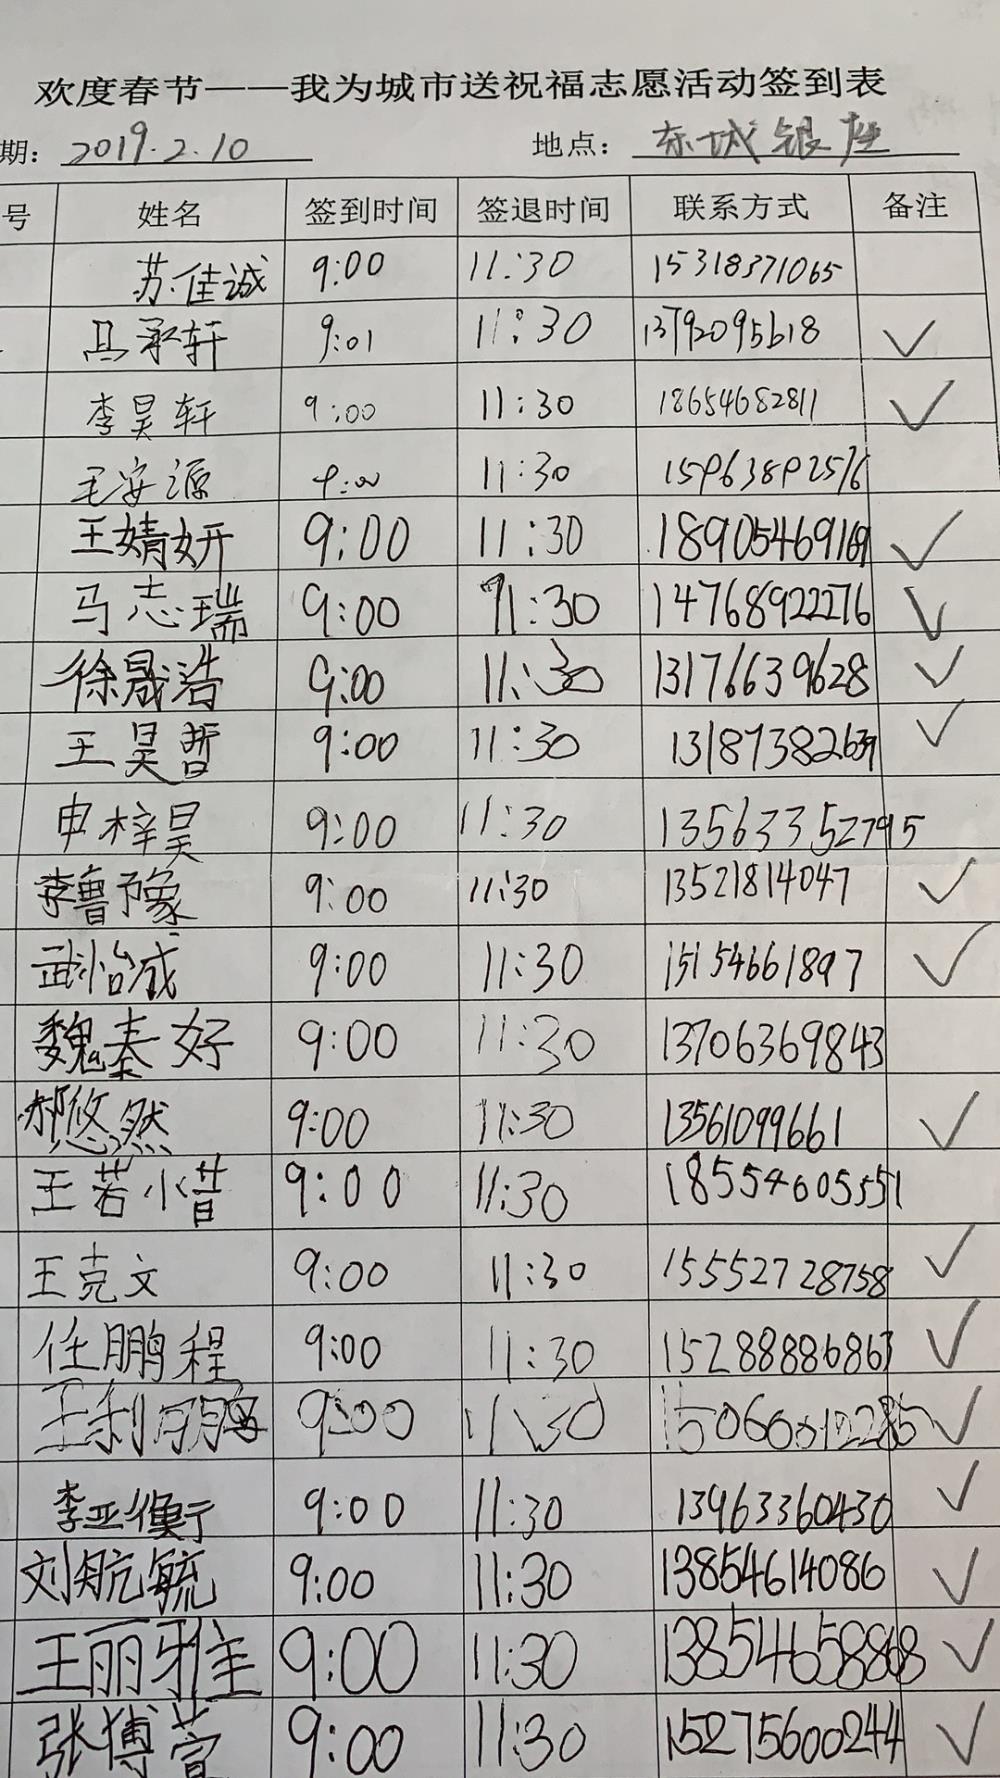 欢度春节——我为城市送祝福志愿活动签到表
期：2019.2.10 地点：东城银座
号 姓名 签到时间 签退时间 联系方式 备注
苏佳诚 9:00 11:30 15318371065
吕承轩 9:01 11:30 13792095618 ✓
李昊轩 9:00 11:30 18654682811 ✓
毛安源 9:00 11:30 15963892576
王婧妍 9:00 11:30 18905469169 ✓
马志瑞 9:00 11:30 14768922276 ✓
徐晟浩 9:00 11:30 13176639628 ✓
王昊哲 9:00 11:30 13187382639 ✓
申梓昊 9:00 11:30 13563352795
李鲁予豪 9:00 11:30 13521814047 ✓
武怡成 9:00 11:30 15154661897 ✓
魏秦好 9:00 11:30 13706369843
郝悠然 9:00 11:30 13561099661 ✓
王若小昔 9:00 11:30 18554605551
王克文 9:00 11:30 15552728758 ✓
任鹏程 9:00 11:30 15288886863 ✓
王利鹏 9:00 11:30 15066012285 ✓
李亚衡 9:00 11:30 13963360430 ✓
刘航毓 9:00 11:30 13854614086 ✓
王丽雅 9:00 11:30 13854658868 ✓
张博萱 9:00 11:30 15275600244 ✓